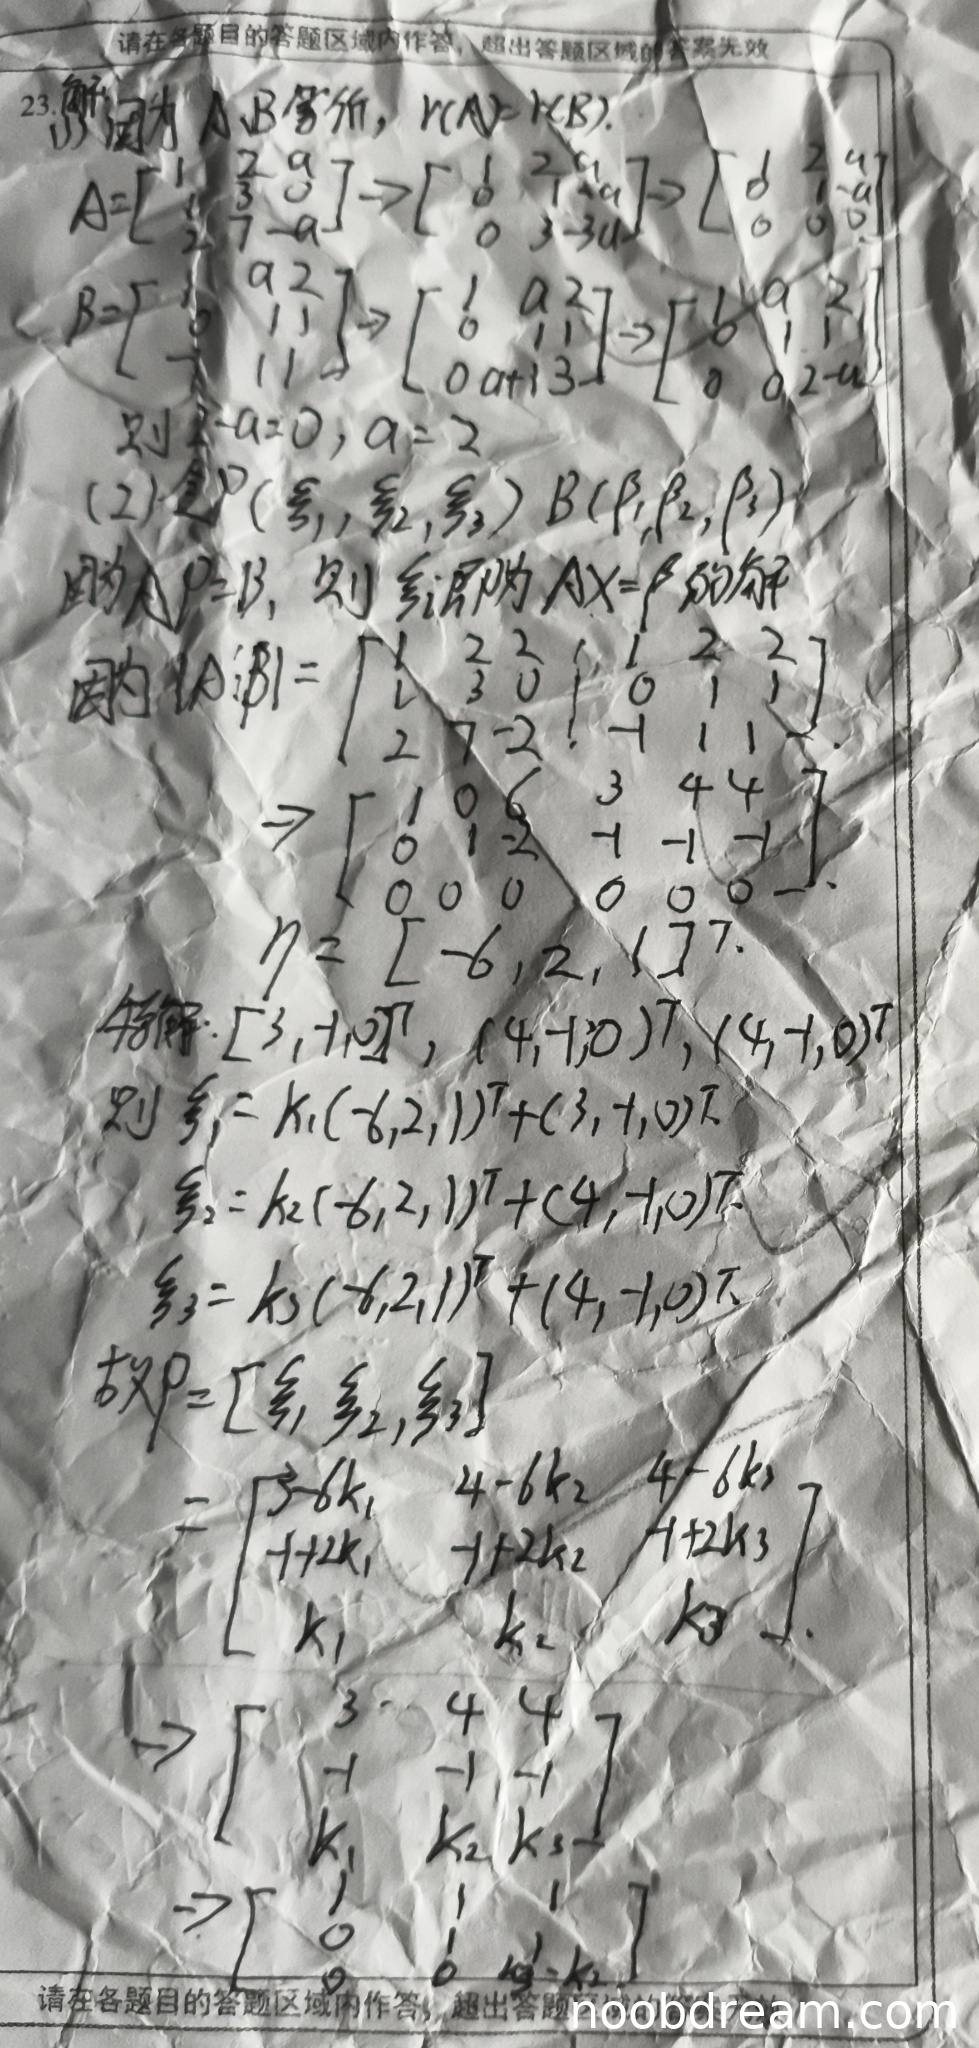 请在各题目的答题区域内作答，超出答题区域的答案无效
23.解
(1) 因为 A、B等价，r(A)=r(B).
A=[1 2 a; 1 3 0; 2 7 -a] → [1 2 a; 0 1 -a; 0 3 -3a] → [1 2 a; 0 1 -a; 0 0 0]
B=[1 a 2; 0 1 1; -1 1 1] → [1 a 2; 0 1 1; 0 a+1 3] → [1 a 2; 0 1 1; 0 0 2-a]
则 2-a=0, a=2
(2) 令P(ξ1, ξ2, ξ3) B(β1, β2, β3)
因为AP=B, 则 ξi即为 AX=β 的解
因为 |A⋮B| = [1 2 2 ⋮ 1 2 2; 1 3 0 ⋮ 0 1 1; 2 7 -2 ⋮ -1 1 1].
→ [1 0 6 3 4 4; 0 1 -2 -1 -1 -1; 0 0 0 0 0 0].
η = [-6, 2, 1]T.
特解: [3,-1,0]T, (4,-1,0)T, (4,-1,0)T
则 ξ1 = k1(-6,2,1)T+(3,-1,0)T.
ξ2 = k2(-6,2,1)T+(4,-1,0)T.
ξ3 = k3(-6,2,1)T+(4,-1,0)T.
故P=[ξ1, ξ2, ξ3]
= [3-6k1 4-6k2 4-6k3; -1+2k1 -1+2k2 -1+2k3; k1 k2 k3].
→ [3 4 4; -1 -1 -1; k1 k2 k3]
→ [1 1 1; 0 1 1; 0 0 k3-k2]
请在各题目的答题区域内作答，超出答题区域的
noobdream.com